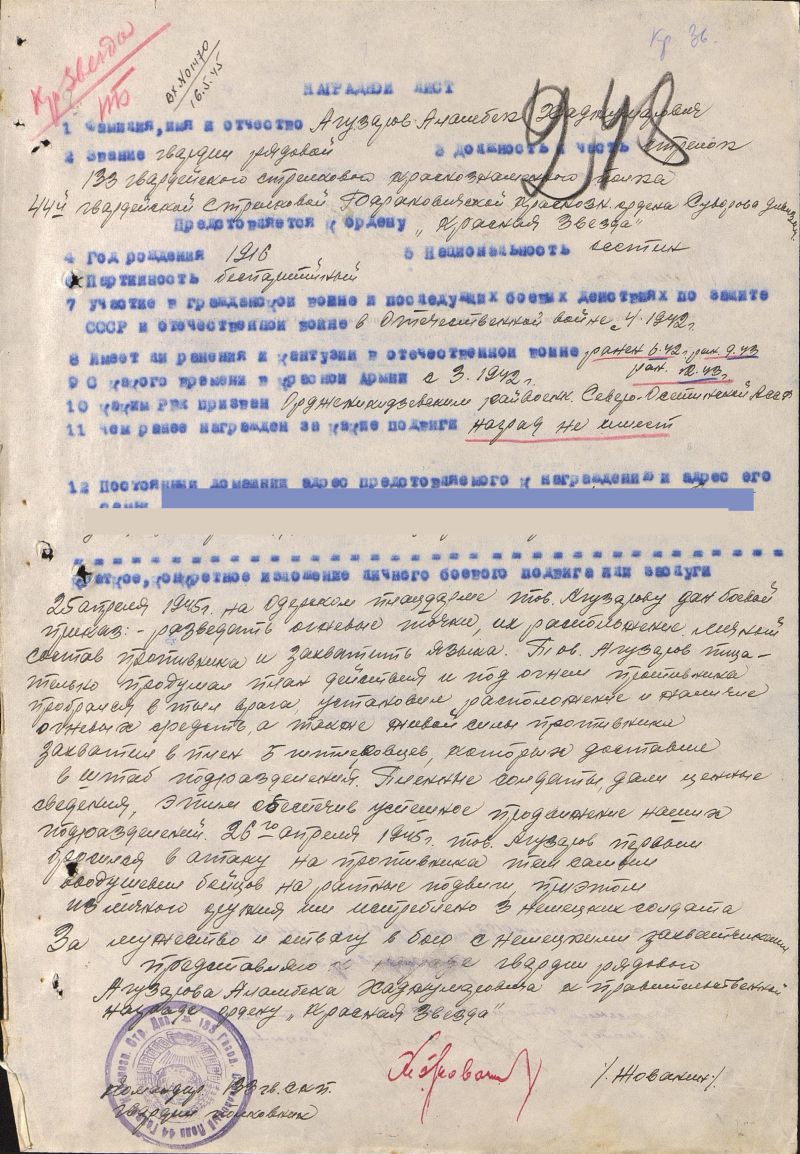 Кр Звезда
ТБ
ВХ.№01470
16.5.45
Кр Зв.
248
НАГРАДНОЙ ЛИСТ
1 Фамилия, имя и отчество Агузаров Аламбек Хаджумарович
2 Звание гвардии рядовой 3 Должность и часть стрелок
133 гвардейского стрелкового Краснознаменного полка
44й гвардейской Стрелковой Барановической Краснозн. ордена Суворова дивизии.
Предстовляется к ордену „Красная Звезда"
4 Год рождения 1916 5 Национальность осетин
6 Партийность беспартийный
7 Участие в гражданской войне и последущих боевых действиях по защите
СССР и отечественной войне в Отечественной войне с 4.1942г.
8 Имеет ли ранения и контузии в отечественной войне ранен 6.42г. ран. 9.43
ран. 43г.
9 С какого времени в Красной Армии с 3.1942г.
10 каким РВК призван Орджоникидзевским райвоенк. Северо-Осетинской АССР
11 чем ранее награжден за какие подвиги наград не имеет
12 Постоянный домашний адрес предстовляемого к награждению и адрес его
семьи
Краткое, конкретное изложение личного боевого подвига или заслуги
25 апреля 1945г. на Одерском плацдарме тов. Агузарову дан боевой
приказ:- разведать огневые точки, их расположение, личный
состав противника и захватить языка. Тов. Агузаров тща-
тельно продумал план действия и под огнем противника
пробрался в тыл врага, установил расположение и наличие
огневых средств, а также живой силы противника
захватил в плен 5 гитлеровцев, которых доставил
в штаб подразделения. Пленные солдаты дали ценные
сведения, этим обеспечив успешное продвижение наших
подразделений. 26го апреля 1945г. тов. Агузаров первым
бросился в атаку на противника тем самым
воодушевил бойцов на ратные подвиги, приэтом
из личного оружия им истреблено 3 немецких солдата
За мужество и отвагу в бою с немецкими захватчиками
представляю к награде гвардии рядового
Агузарова Аламбека Хаджумаровича к правительственной
награде ордену „Красная Звезда"
Командир 133 гв. с.к.п.
гвардии полковник
/Жованик/.